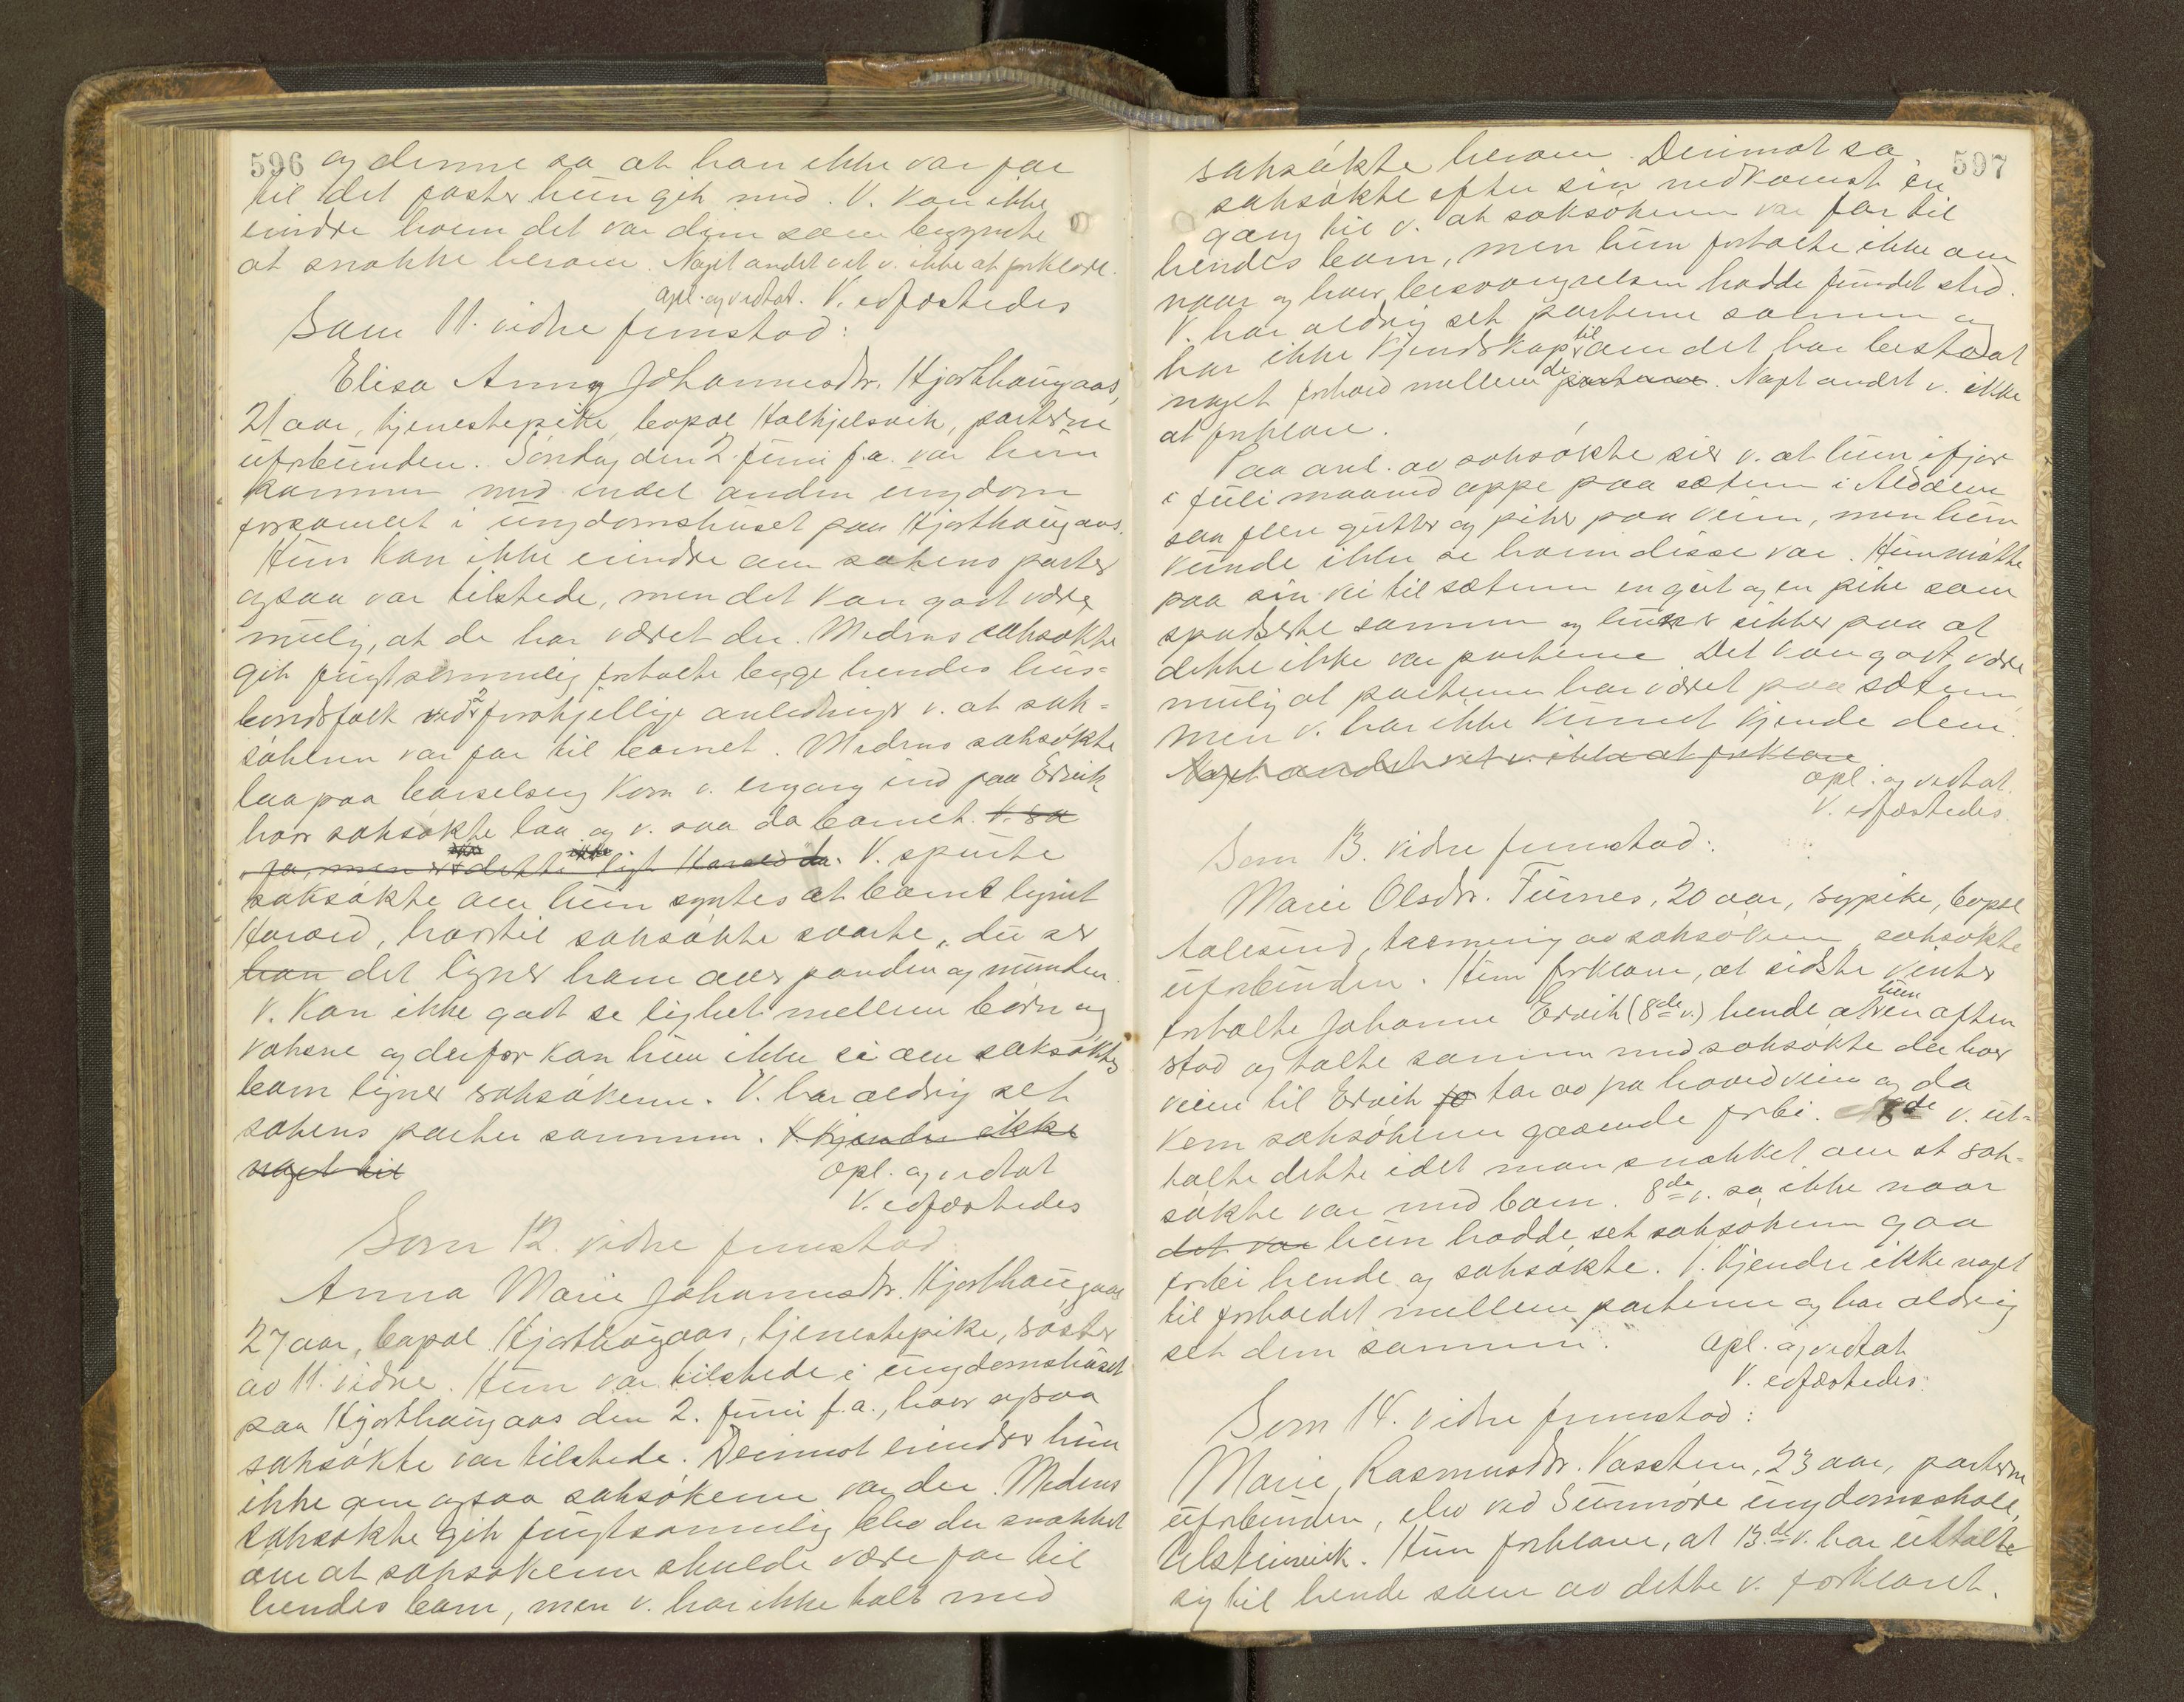 596 og denne sa at han ikke var far
til det foster hun gik med. V. kan ikke
erindre hvem det var dem som begynte
at snakke herom. Noget andet vet v. ikke at forklare.
opl. og vedtat. V. edfæstedes
Som 11. vidne fremstod:
Elisa Anna Johannesdr. Hjorthaugaas,
21 aar, tjenestepike, bopæl Halkjelsvik, parterne
uforbunden. Søndag den 2. juni f.a. var hun
sammen med endel anden ungdom
forsamlet i ungdomshuset paa Hjorthaugaas.
Hun kan ikke erindre om sakens parter
ogsaa var tilstede, men det kan godt være
mulig, at de har været der. Medens saksøkte
gik frugtsommelig fortalte begge hendes hus-
bondsfolk ved 2 forskjellige anledninger v. at sak-
søkeren var far til barnet. Medens saksøkte
laa paa barselseng kom v. engang ind paa Ervik
hvor saksøkte laa og v. saa da barnet. V. sa
ja, men er dette ikke likt Harald da. V. spurte
saksøkte om hun syntes at barnet lignet
Harald, hvortil saksøkte svarte „du ser
han det ligner ham over panden og munden.
V. kan ikke godt se lighet mellem børn og
voksne og derfor kan hun ikke si om saksøktes
barn ligner saksøkeren. V. har aldrig set
sakens parter sammen. V. kjender ikke
noget til opl. og vedtat
V. edfæstedes
Som 12. vidne fremstod
Anna Marie Johannesdr. Hjorthaugaas
27 aar, bopæl Hjorthaugaas, tjenestepike, søster
av 11. vidne. Hun var tilstede i ungdomshuset
paa Hjorthaugaas den 2. juni f.a., hvor ogsaa
saksøkte var tilstede. Derimot erindrer hun
ikke om ogsaa saksøkeren var der. Medens
saksøkte gik frugtsommelig blev der snakket
om at saksøkeren skulde være far til
hendes barn, men v. har ikke talt med
597
saksøkte herom. Derimot sa
saksøkte efter sin nedkomst en
gang til v. at saksøkeren var far til
hendes barn, men hun fortalte ikke om
naar og hvor besvangrelsen hadde fundet sted.
V. har aldrig set parterne sammen og
har ikke kjendskap til om det har bestaaat
noget forhold mellem de parterne. Noget andet v. ikke
at forklare.
Paa anl. av saksøkte sier v. at hun ifjor
i juli maaned oppe paa sætren i
saa flere gutter og piker paa veien, men hun
kunde ikke se hvem disse var. Hun møtte
paa sin vei til sætren en gut og en pike som
spaserte sammen og hun er sikker paa at
dette ikke var parterne. Det kan godt være
mulig at parterne har været paa sætren,
men v. har ikke kunnet kjende dem.
Noget andet vet v. ikke at forklare
opl. og vedtat.
V. edfæstedes.
Som 13. vidne fremstod:
Marie Olsdr. Furnes, 20 aar, sypike, bopæl
Aalesund, tremening av saksøkeren, saksøkte
uforbunden. Hun forklarer, at sidste vinter
fortalte Johanne Ervik (8de v.) hende at hun en aften
stod og talte sammen med saksøkte der hvor
veien til Ervik fo tar av fra hovedveien og da
kom saksøkeren gaaende forbi. 8de v. ut-
talte dette idet man snakket om at sak-
søkte var med barn. 8de v. sa ikke naar
det var hun hadde set saksøkeren gaa
forbi hende og saksøkte. V. kjender ikke noget
til forholdet mellem parterne og har aldrig
set dem sammen. opl. og vedtat
V. edfæstedes.
Som 14. vidne fremstod:
Marie Rasmusdr. Vassetren, 23 aar, parterne
uforbunden, elev ved Sunmøre ungdomsskole,
Ulsteinvik. Hun forklarer, at 13de v. har uttalt
sig til hende som av dette v. forklaret.